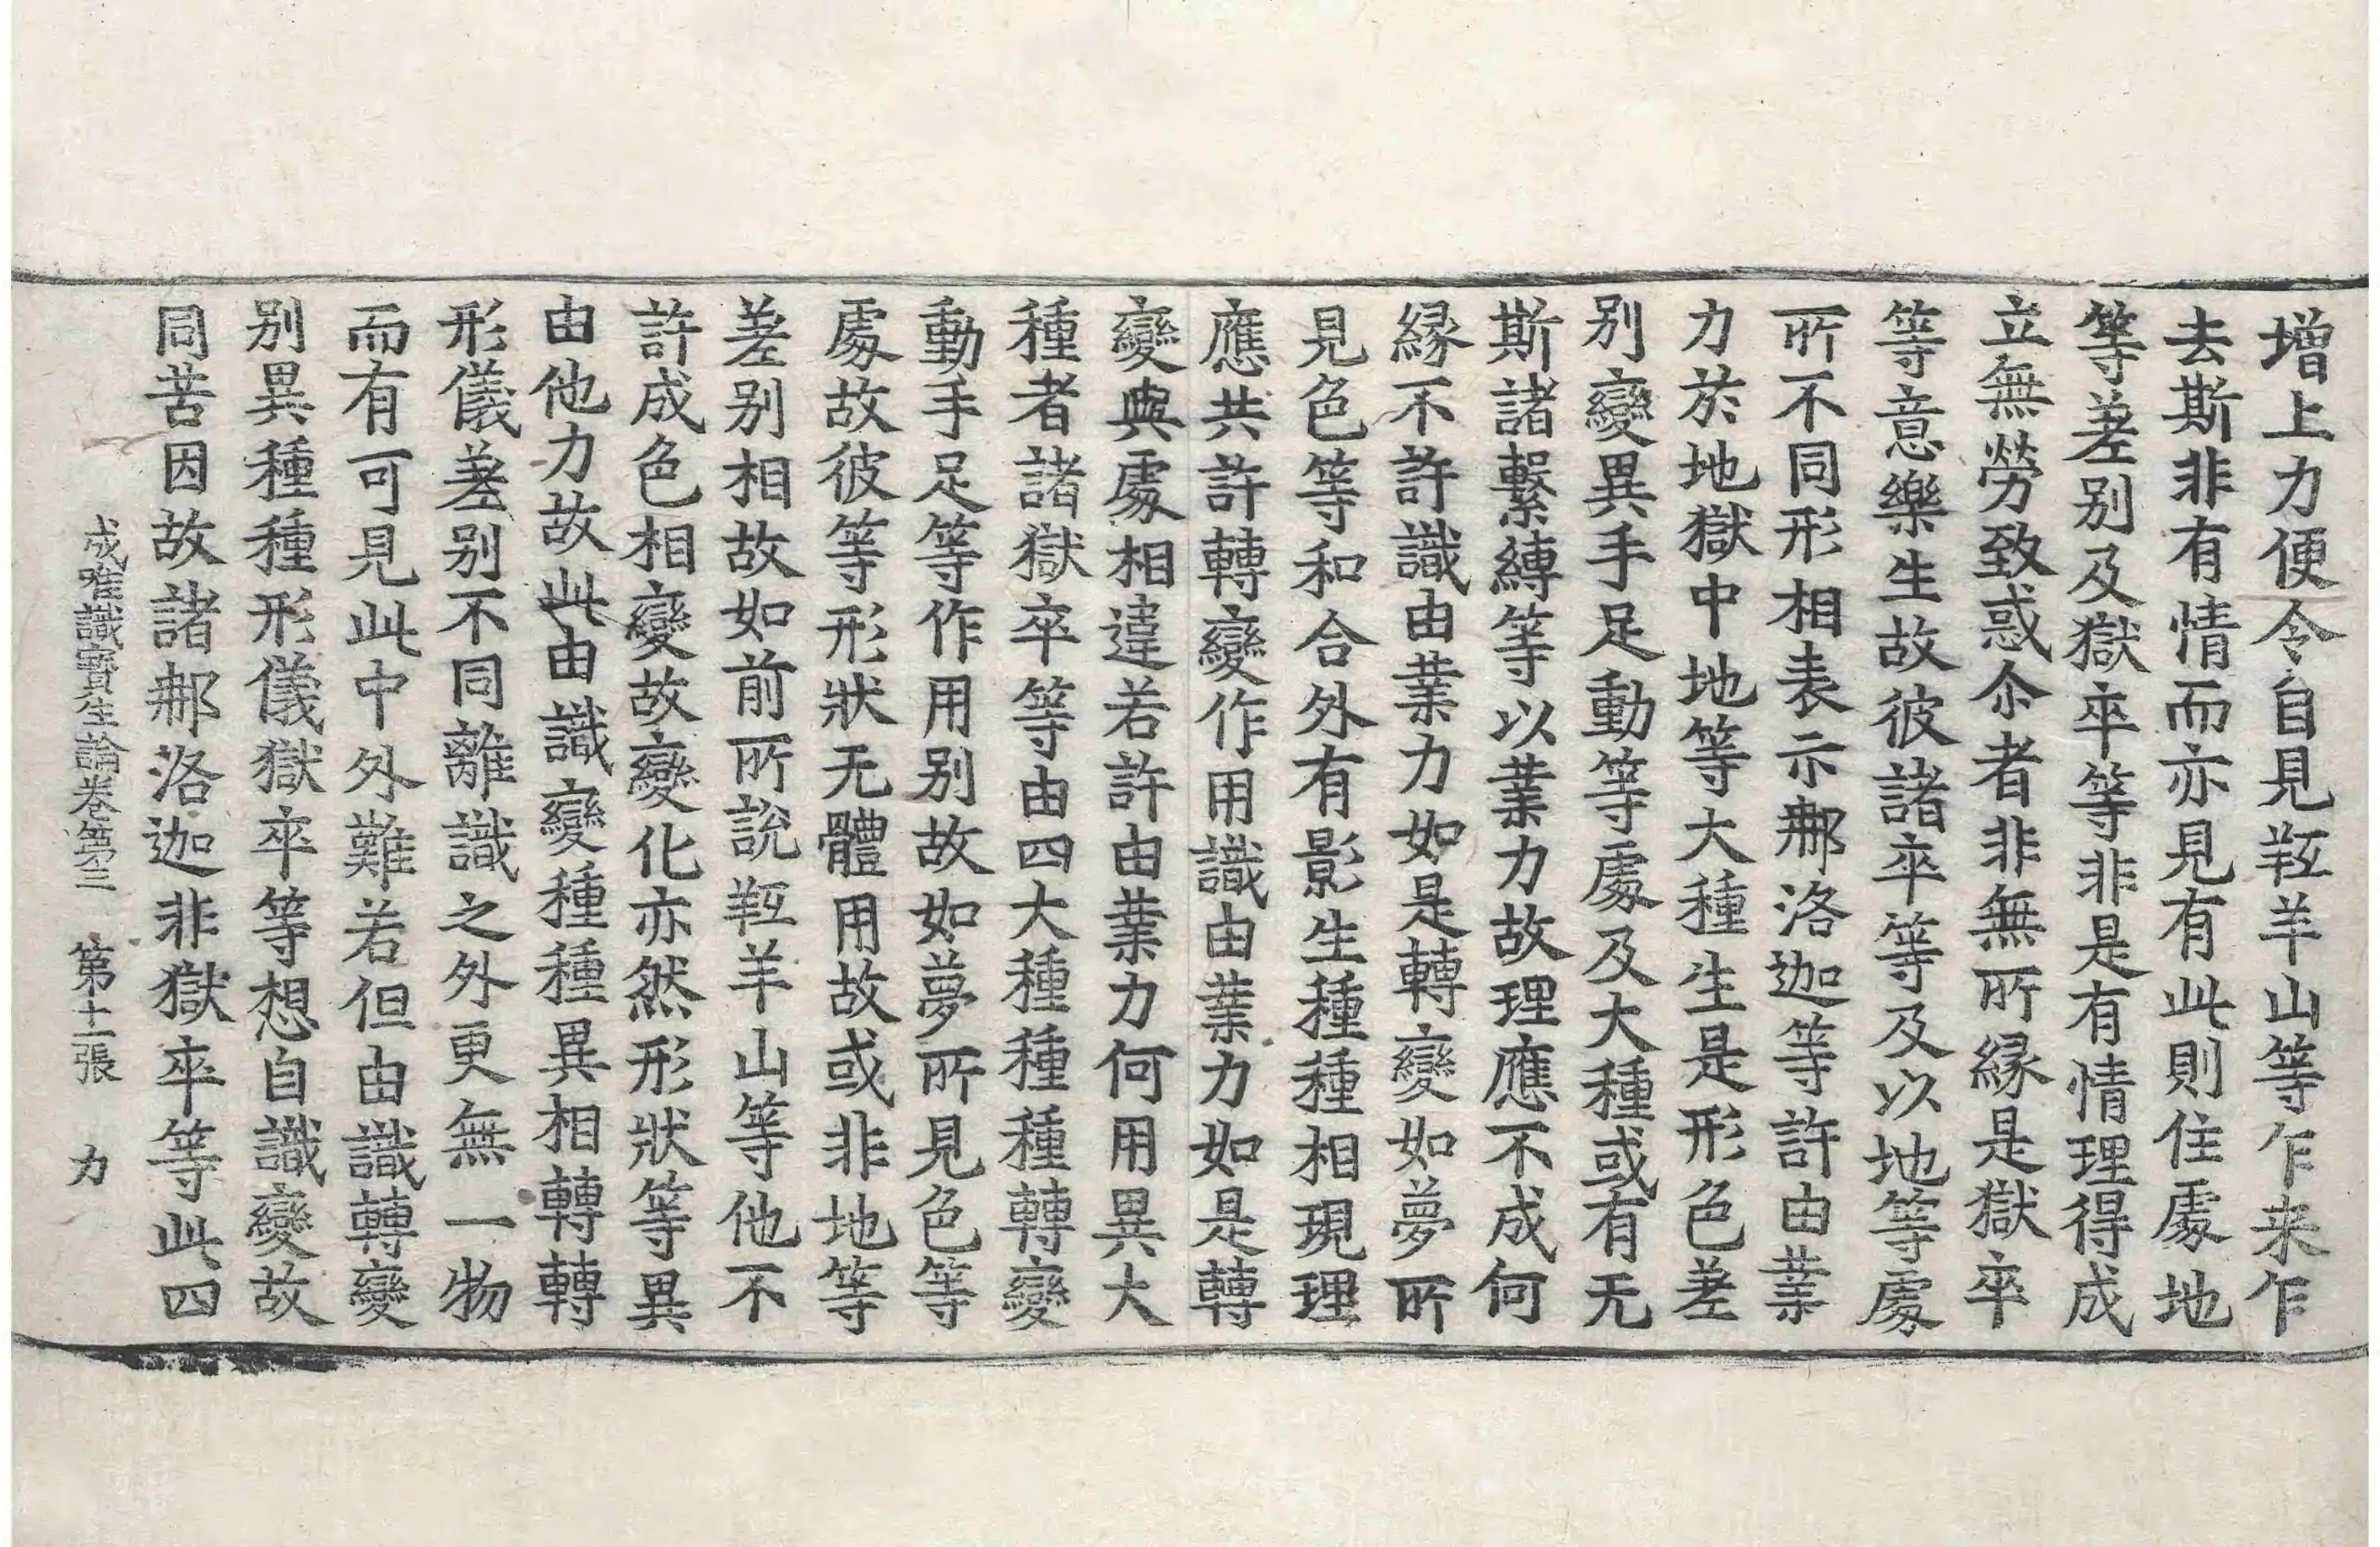 增上力便令自見羥羊山等乍来乍
去斯非有情而亦見有此則住處地
等差别及獄卒等非是有情理得成
立無勞致惑尒者非無所縁是獄卒
等意樂生故彼諸卒等及以地等處
所不同形相表示㮈洛迦等許由業
力於地獄中地等大種生是形色差
别變異手足動等處及大種或有无
斯諸繫縛等以業力故理應不成何
縁不許識由業力如是轉變如夢所
見色等和合外有影生種種相現理
應共許轉變作用識由業力如是轉
變與處相違若許由業力何用異大
種者諸獄卒等由四大種種種轉變
動手足等作用别故如夢所見色等
處故彼等形狀无體用故或非地等
差别相故如前所說羥羊山等他不
許成色相變故變化亦然形狀等異
由他力故此由識變種種異相轉轉
形儀差别不同離識之外更無一物
而有可見此中外難若但由識轉變
别異種種形儀獄卒等想自識變故
同苦因故諸㮈洛迦非獄卒等此四
成唯識寶生論卷第三　第十二張　力